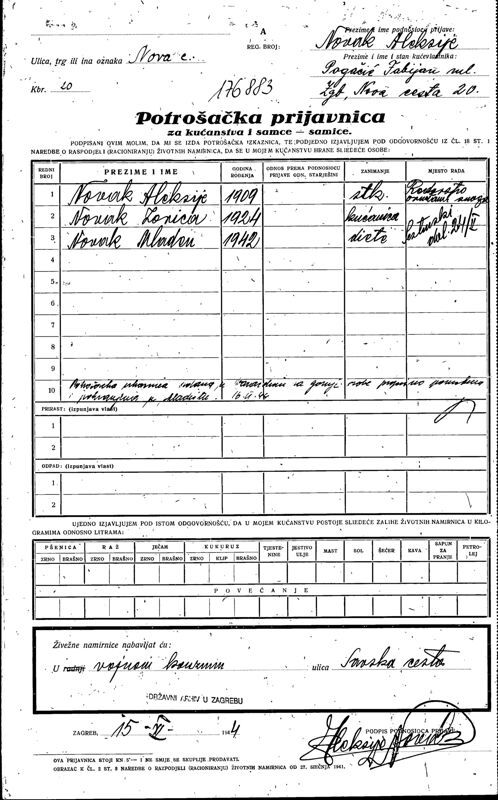 A
REG. BROJ:
Prezime i ime podnosioca prijave:
Novak Aleksije
Ulica, trg ili ina oznaka Nova c.
Prezime i ime i stan kućevlasnika:
Kbr. 20
176883
Zgb, Nova cesta 20.
Potrošačka prijavnica
za kućanstva i samce – samice.
POTPISANI OVIM MOLIM, DA MI SE IZDA POTROŠAČKA ISKAZNICA, TE PODJEDNO IZJAVLJUJEM POD ODGOVORNOŠĆU IZ ČL. 18 ST. 1
NAREDBE O RASPODJELI (RACIONIRANJU) ŽIVOTNIH NAMIRNICA, DA SE U MOJEM KUĆANSTVU HRANE SLIJEDEĆE OSOBE:
REDNI BROJ PREZIME I IME GODINA ROĐENJA ODNOS PREMA PODNOSIOCU PRIJAVE ODN. STARJEŠINI ZANIMANJE MJESTO RADA
1 Novak Aleksije 1909 stk.
2 Novak Zorica 1924 kućanica
3 Novak Mladen 1942 diete
4
5
6
7
8
9
10
PRIRAST: (izpunjava vlast)
1
2
ODPAD: (izpunjava vlast)
1
2
UJEDNO IZJAVLJUJEM POD ISTOM ODGOVORNOŠĆU, DA U MOJEM KUĆANSTVU POSTOJE SLIJEDEĆE ZALIHE ŽIVOTNIH NAMIRNICA U KILO-
GRAMIMA ODNOSNO LITRAMA:
PŠENICA RAŽ JEČAM KUKURUZ TJESTE-NINE JESTIVO ULJE MAST SOL ŠEĆER KAVA SAPUN ZA PRANJE PETRO-LEJ
ZRNO BRAŠNO ZRNO BRAŠNO ZRNO BRAŠNO ZRNO KLIP BRAŠNO
POVEĆANJE
Živežne namirnice nabavljat ću:
U radnji vojnom ulica Savska cesta
DRŽAVNI ARHIV U ZAGREBU
ZAGREB, 15 - VI 1944
POTPIS PODNOSIOCA PRIJAVE
Aleksije Novak
OVA PRIJAVNICA STOJI KN. 5'— I NE SMIJE SE SKUPLJE PRODAVATI.
OBRAZAC K ČL. 2 ST. 8 NAREDBE O RASPODJELI (RACIONIRANJU) ŽIVOTNIH NAMIRNICA OD 27. SIJEČNJA 1941.